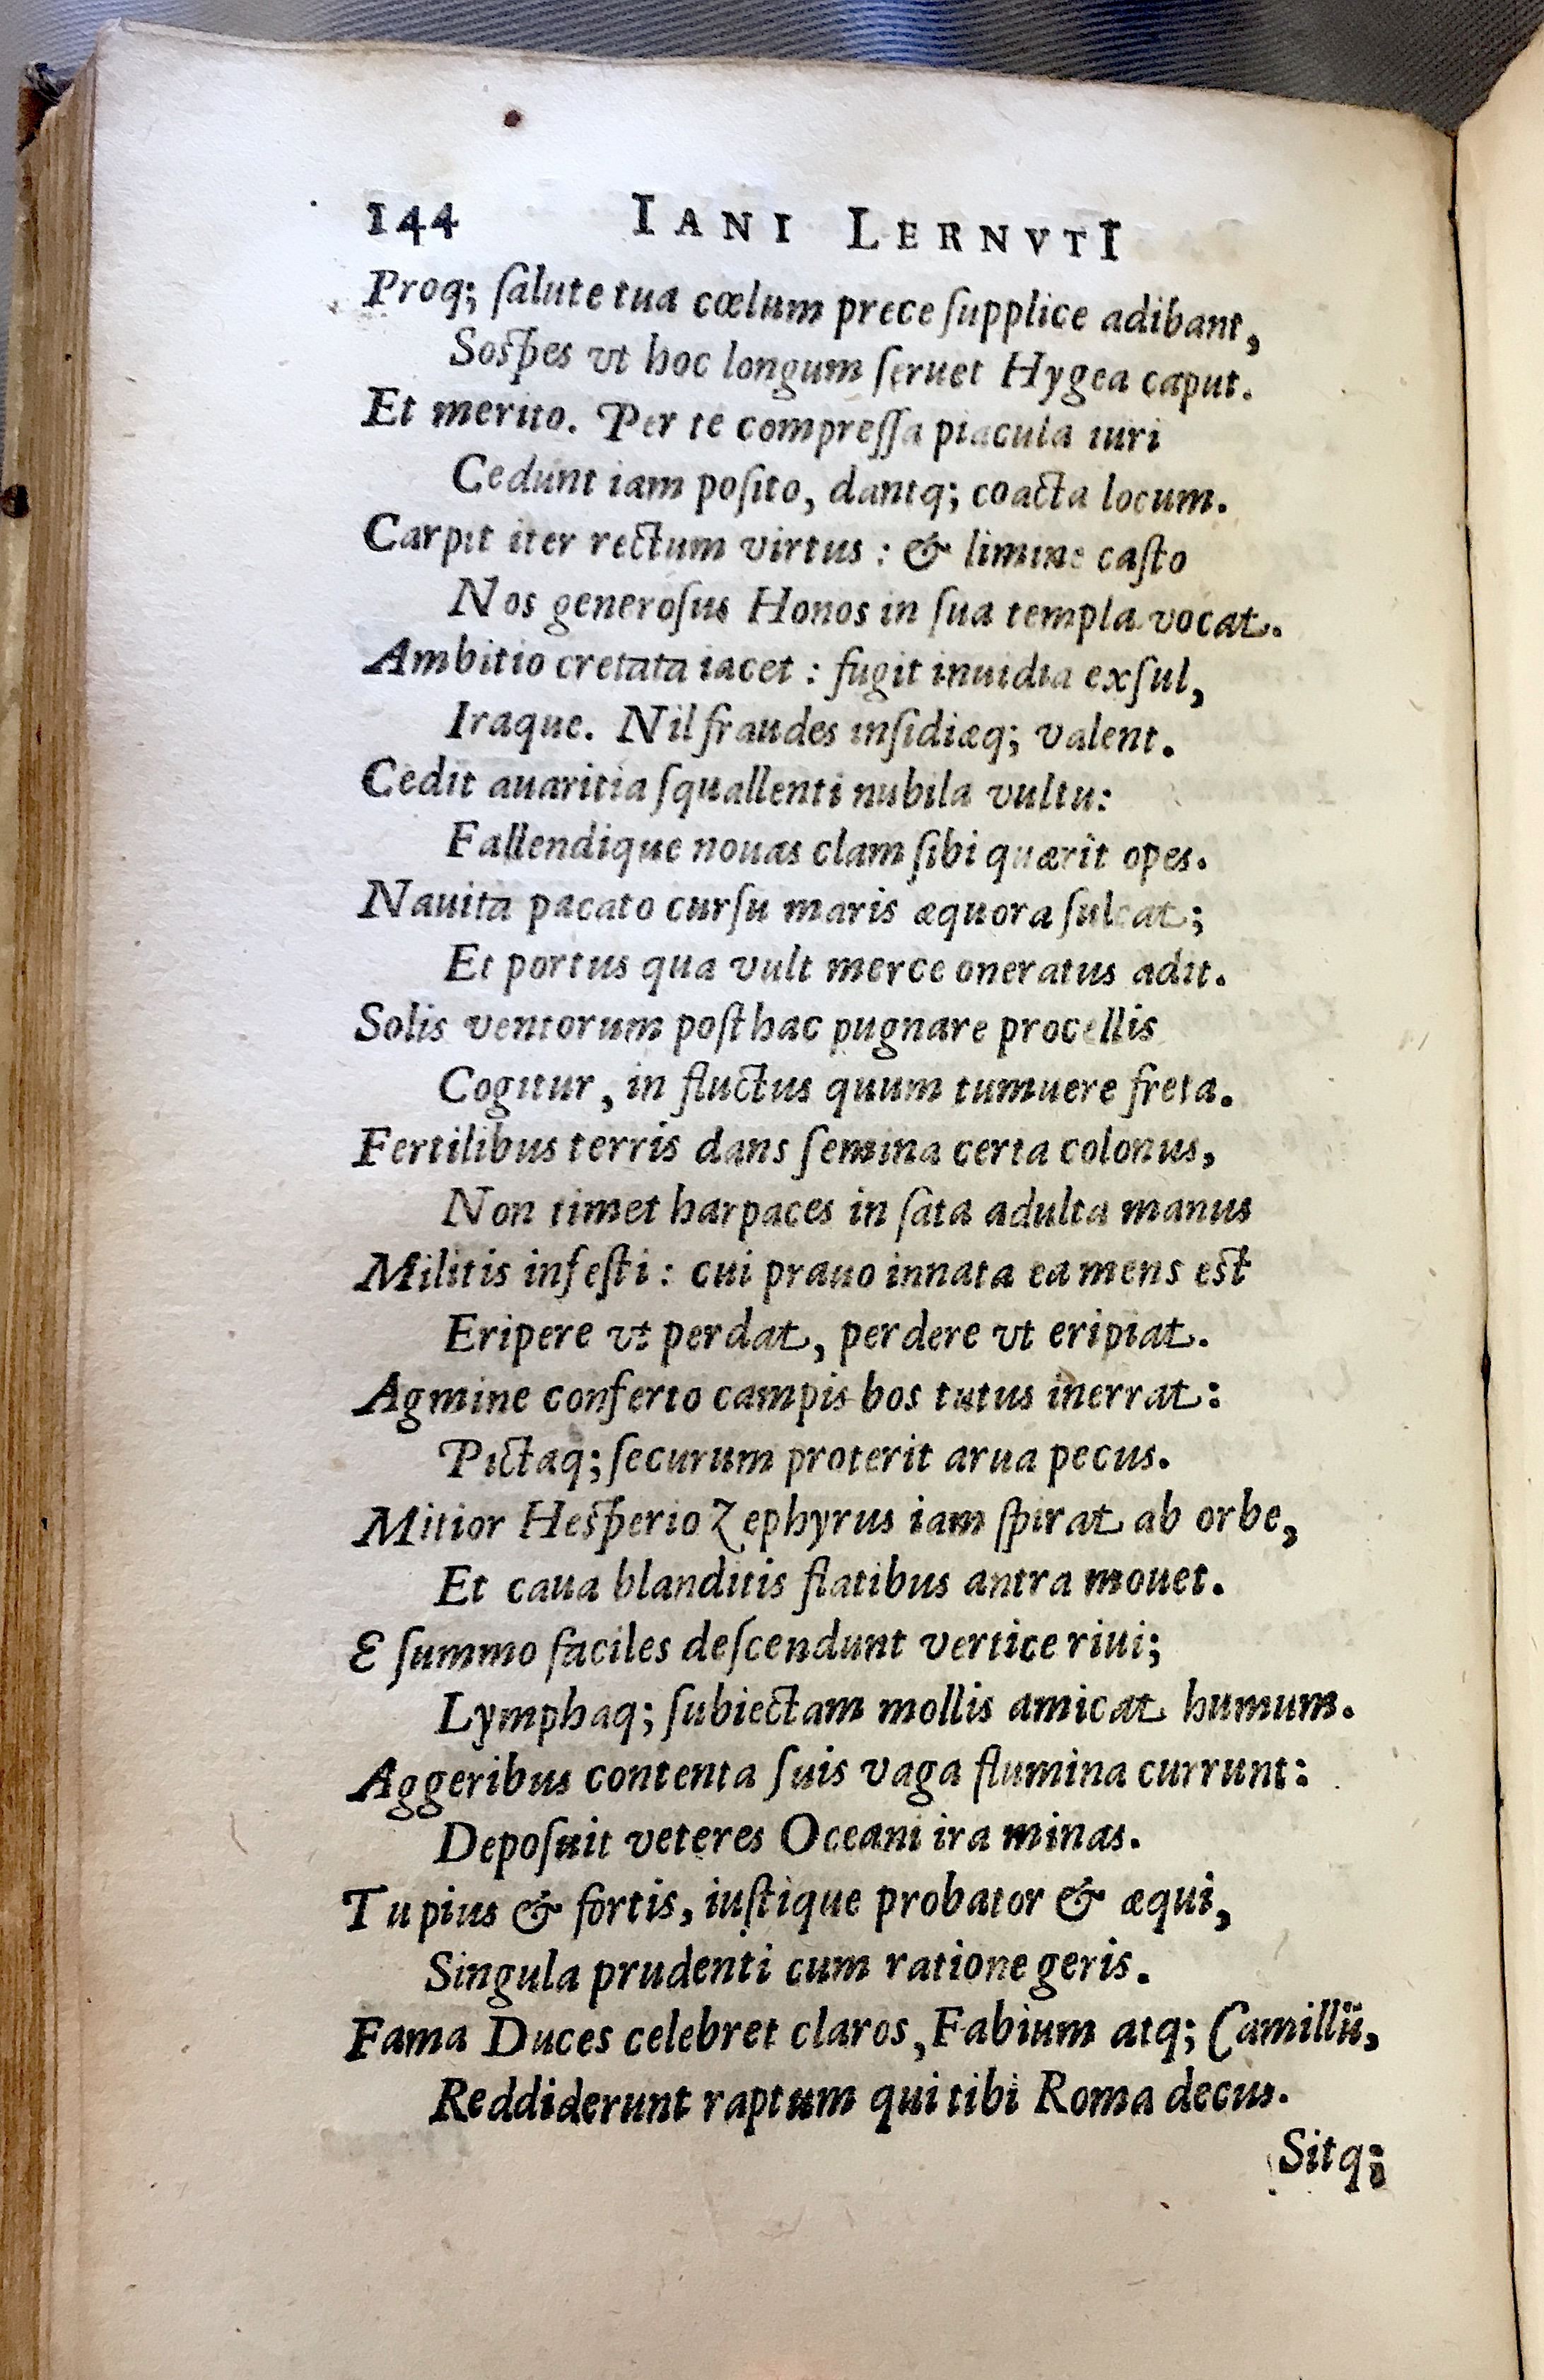 144 IANI LERNVTI
Proq; ſalute tua cœlum prece ſupplice adibant,
Soſpes vt hoc longum ſeruet Hygea caput.
Et merito. Per te compreſſa piacula iuri
Cedunt iam poſito, dantq; coacta locum.
Carpit iter rectum virtus: & limine caſto
Nos generoſus Honos in ſua templa vocat.
Ambitio cretata iacet: fugit inuidia exſul,
Iraque. Nil fraudes inſidiæq; valent.
Cedit auaritia ſquallenti nubila vultu:
Fallendique nouas clam ſibi quærit opes.
Nauita pacato curſu maris æquora ſulcat;
Et portus qua vult merce oneratus adit.
Solis ventorum poſthac pugnare procellis
Cogitur, in fluctus quum tumuere freta.
Fertilibus terris dans ſemina certa colonus,
Non timet harpaces in ſata adulta manus
Militis infeſti: cui prauo innata ea mens eſt
Eripere vt perdat, perdere vt eripiat.
Agmine conferto campis bos tutus inerrat:
Pictaq; ſecurum proterit arua pecus.
Mitior Heſperio Zephyrus iam ſpirat ab orbe,
Et caua blanditis flatibus antra mouet.
E ſummo faciles deſcendunt vertice riui;
Lymphaq; ſubiectam mollis amicat humum.
Aggeribus contenta ſuis vaga flumina currunt:
Depoſuit veteres Oceani ira minas.
Tu pius & fortis, iuſtique probator & æqui,
Singula prudenti cum ratione geris.
Fama Duces celebret claros, Fabium atq; Camillũ,
Reddiderunt raptum qui tibi Roma decus.
Sitq;